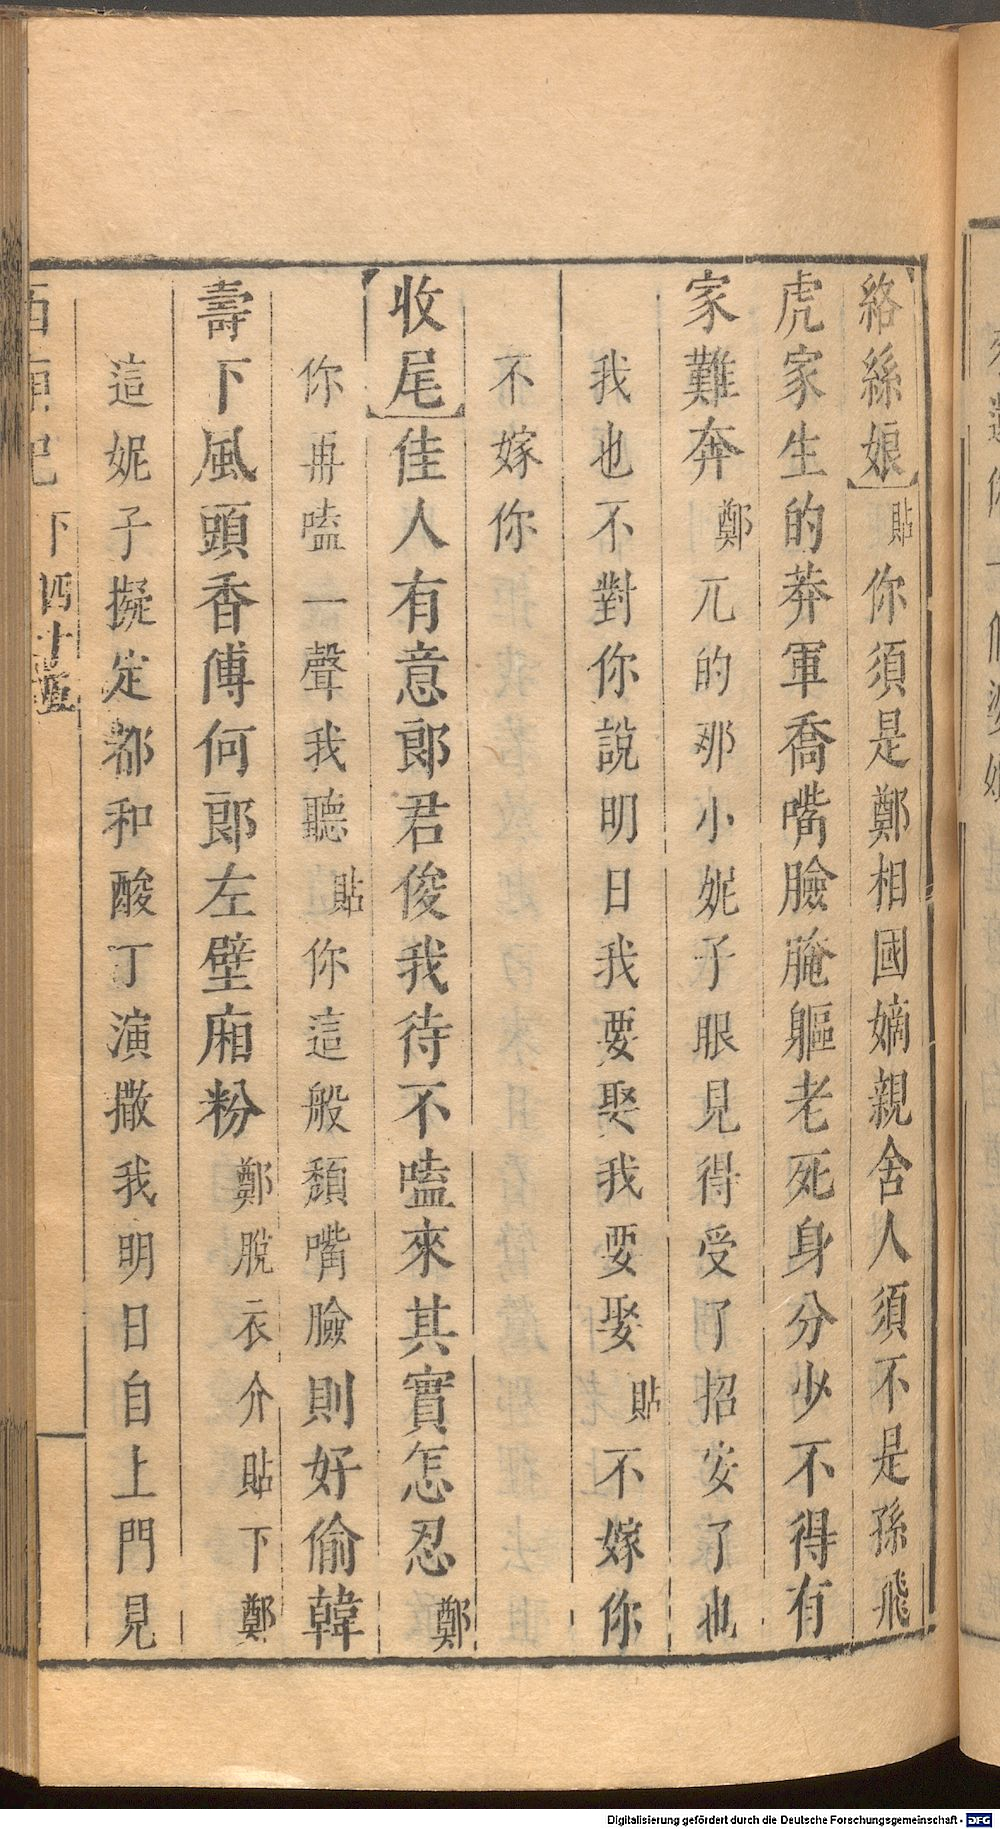 絡絲娘貼你須是鄭相國嫡親舍人須不是孫飛
虎家生的莽軍喬嘴臉腌軀老死身分少不得有
家難奔鄭兀的那小妮子眼見得受了招安了也
我也不對你說明日我要娶我要娶貼不嫁你
不嫁你
收尾佳人有意郎君俊我待不嗑來其實怎忍鄭
你再嗑一聲我聽貼你這般頹嘴臉則好偷韓
壽下風頭香傅何郎左壁廂粉鄭脫衣介貼下鄭
這妮子擬定都和酸丁演撒我明日自上門見
西廂記 下 四十五
Digitalisierung gefördert durch die Deutsche Forschungsgemeinschaft - DFG